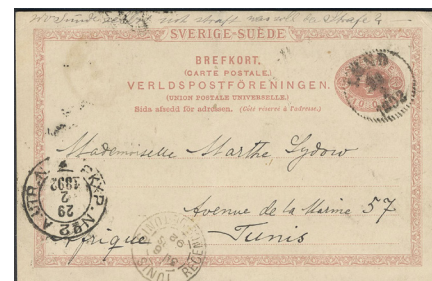 SVERIGE-SUÈDE
BREFKORT.
(CARTE POSTALE.)
VERLDSPOSTFÖRENINGEN.
(UNION POSTALE UNIVERSELLE.)
Sida afsedd för adressen. (Côté réservé à l'adresse.)
LUND
1892
Mademoiselle Marthe Sydow
Avenue de la Marine 57
Afrique Tunis
PKXP. Nº2 A UTR.
29
2
1892
TUNIS
REGENCE